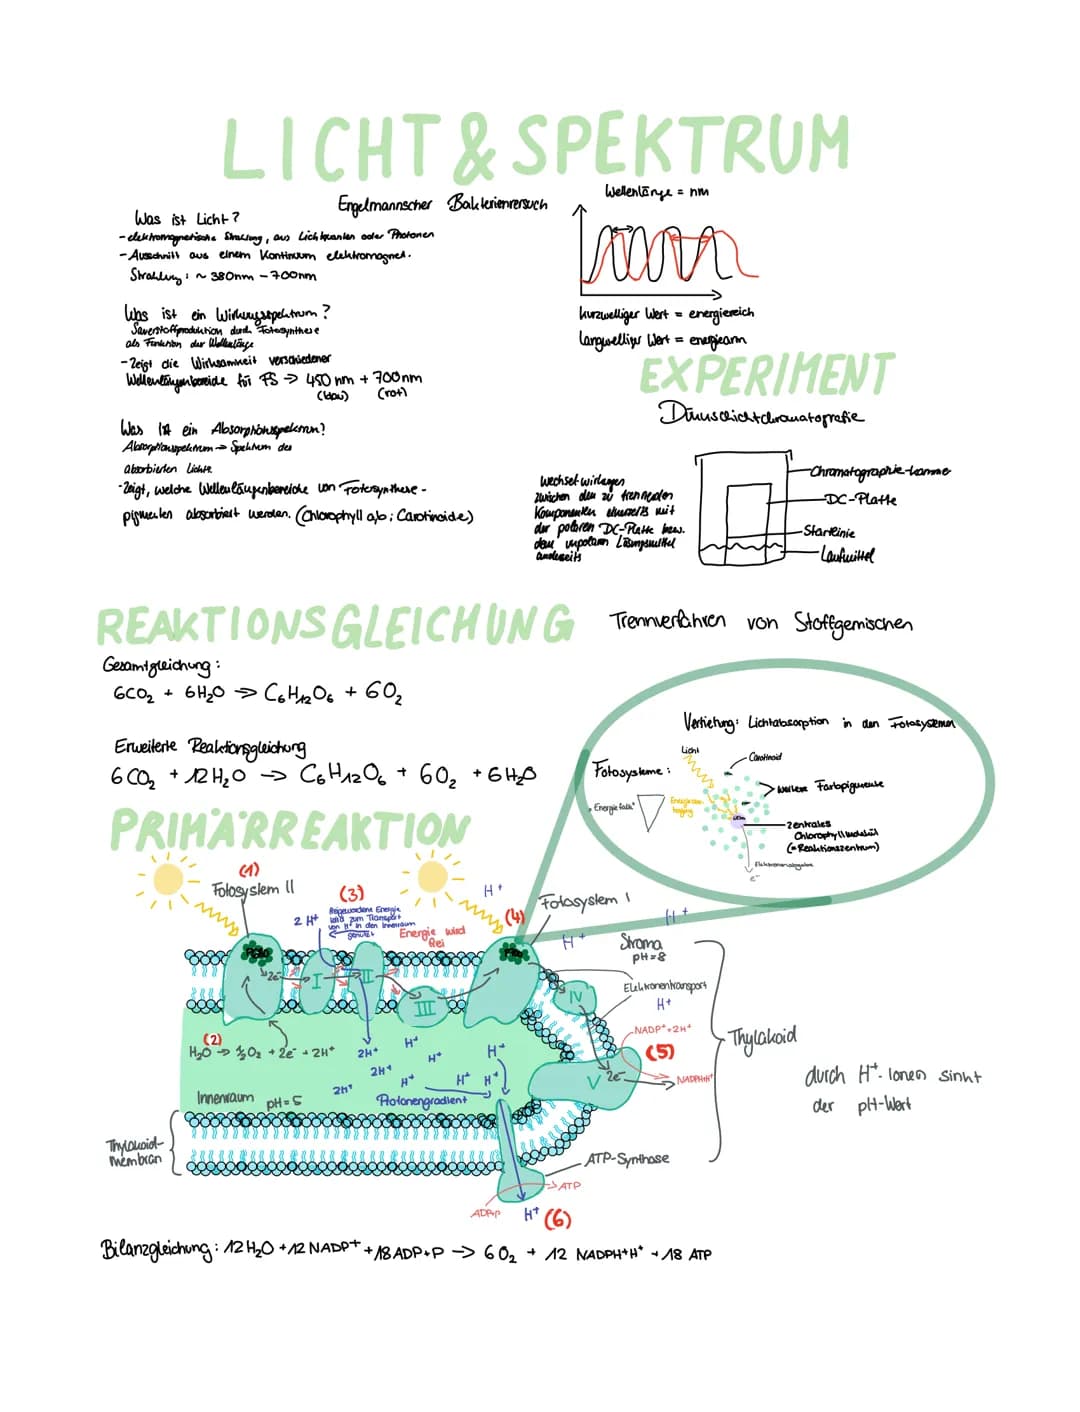 LICHT & SPEKTRUM
Engelmannscher Bakterienversuch
Was ist Licht?
- elektromagnetische Strahlung, aus Lichtquanten oder Photonen
- Ausschnitt aus einem Kontinuum elektromagnet.
Strahlung: ~ 380nm - 700nm
Was ist ein Wirkungsspektrum?
Sauerstoffproduktion durch Fotosynthese
als Funktion der Wellenlänge
- Zeigt die Wirksamkeit verschiedener
Wellenlängenbereiche für FS → 450 nm + 700nm
(blau) (rot)
Was ist ein Absorptionsspektrum?
Absorptionsspektrum → Spektrum des
absorbierten Lichts
- Zeigt, welche Wellenlängenbereiche von Fotosynthese-
pigmenten absorbiert werden. (Chlorophyll a/b; Carotinoide)
Wellenlänge = nm
kurzwelliger Wert = energiereich
langwelliger Wert = energiearm
EXPERIMENT
Dünnschichtchromatografie
Wechselwirkungen
zwischen den zu trennenden
Komponenten einerseits mit
der polaren DC-Platte bzw.
dem unpolaren Lösungsmittel
andererseits
Chromatographie-kammer
DC-Platte
Startlinie
Laufmittel
Trennverfahren von Stoffgemischen
REAKTIONSGLEICHUNG
Gesamtgleichung:
6CO₂ + 6H₂O → C₆H₁₂O₆ + 6O₂
Erweiterte Reaktionsgleichung
6 CO₂ + 12 H₂O → C₆H₁₂O₆ + 6O₂ + 6 H₂O
Vertiefung: Lichtabsorption in den Fotosystemen
Fotosysteme:
Licht
Carotinoid
weitere Farbpigmente
"Energiefalle"
zentrales
Chlorophyllmolekül
(=Reaktionszentrum)
Elektronenabgabe
e⁻
PRIMÄRREAKTION
(1)
Fotosystem II
2 H⁺
(3)
Freigewordene Energie
wird zum Transport
von H⁺ in den Innenraum
genutzt
Energie wird
frei
H⁺
(4)
Fotosystem I
H⁺
H⁺
Stroma
pH=8
2e⁻
I
II
III
IV
Elektronentransport
H⁺
NADP⁺+2H⁺
(5)
V
2e⁻
NADPH+H⁺
(2)
H₂O → ½O₂ + 2e⁻ + 2H⁺
2H⁺
H⁺
H⁺
H⁺
2H⁺
2H⁺
H⁺
H⁺
H⁺
Protonengradient
Innenraum pH=5
Thylakoid
durch H⁺-Ionen sinkt
der pH-Wert
Thylakoid-
membran
ATP-Synthase
ADP+P
ATP
H⁺
(6)
Bilanzgleichung: 12 H₂O + 12 NADP⁺ + 18 ADP+P → 6 O₂ + 12 NADPH+H⁺ + 18 ATP